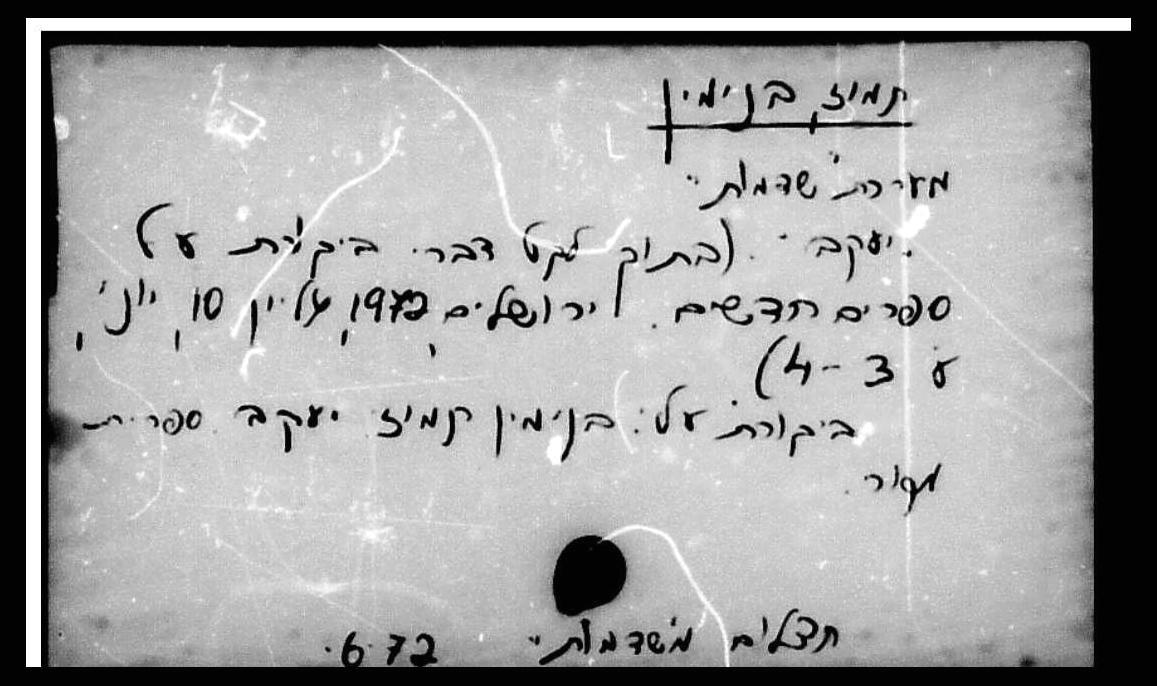 תמוז, בנימין
מערכת "שדמות"
"יעקב". (בתוך לקט דברי ביקורת על
ספרים חדשים. ירושלים, 1972, גליון 10, יוני,
ע 3-4)
ביקורת על: בנימין תמוז יעקב. ספרית
מקור.
"שדמות" 6.72.